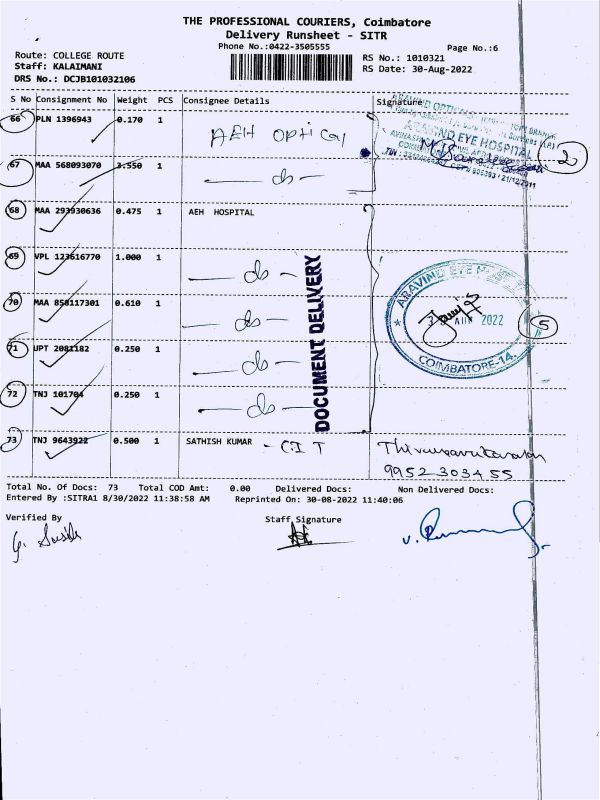 THE PROFESSIONAL COURIERS, Coimbatore
Delivery Runsheet - SITR
Phone No.:0422-3505555
Page No.:6
Route: COLLEGE ROUTE
RS No.: 1010321
Staff: KALAIMANI
RS Date: 30-Aug-2022
DRS No.: DCJB101032106
S No Consignment No Weight PCS Consignee Details Signature
66 PLN 1396943 0.170 1 AEH OPTICAL
ARAVIND EYE HOSPITAL
2
67 MAA 568093070 3.550 1 — do —
68 MAA 293930636 0.475 1 AEH HOSPITAL
69 VPL 123616770 1.000 1 — do —
DOCUMENT DELIVERY
ARAVIND EYE
70 MAA 858117301 0.610 1 — do —
2022
5
COIMBATORE-14.
71 UPT 2081182 0.250 1 — do —
72 TNJ 101704 0.250 1 — do —
73 TNJ 9643922 0.500 1 SATHISH KUMAR - CIT
9952303455
Total No. Of Docs: 73 Total COD Amt: 0.00 Delivered Docs: Non Delivered Docs:
Entered By :SITRA1 8/30/2022 11:38:58 AM Reprinted On: 30-08-2022 11:40:06
Verified By
Staff Signature